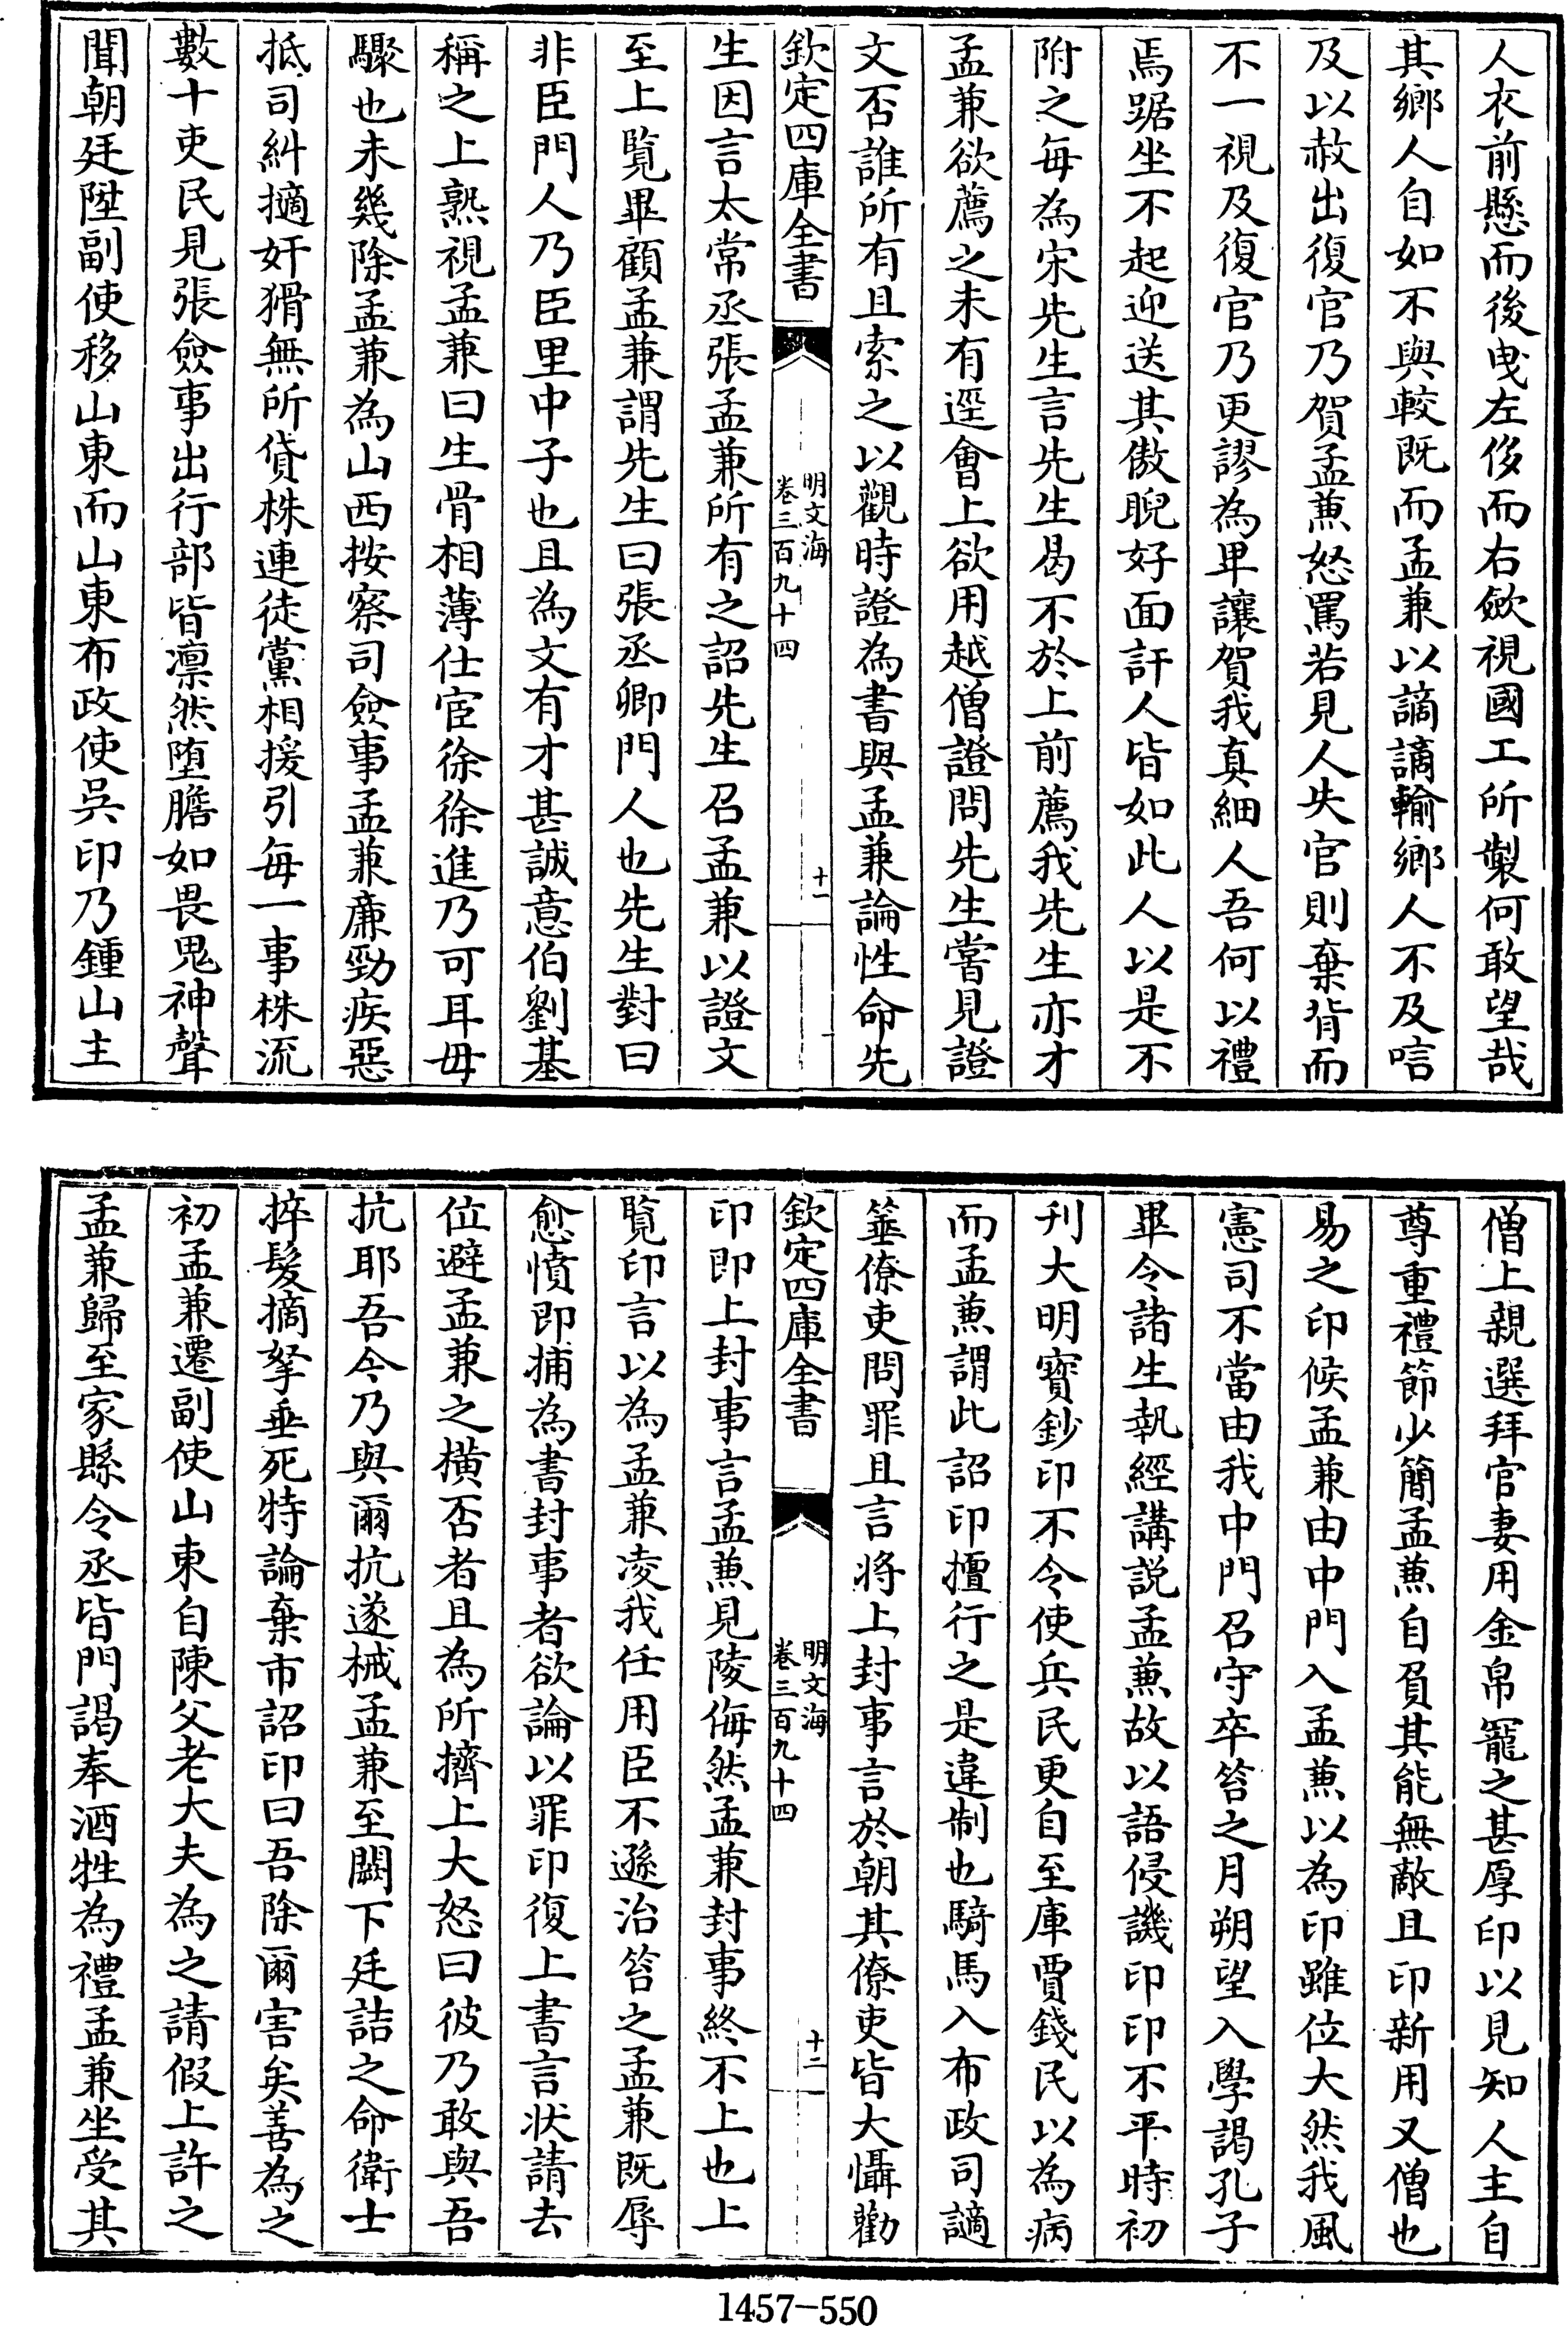 人衣前懸而後曳左侈而右歛視國工所製何敢望哉
其鄉人自如不與較既而孟兼以謫謫輸鄉人不及唁
及以赦出復官乃賀孟兼怒罵若見人失官則棄背而
不一視及復官乃更謬為卑讓賀我真細人吾何以禮
焉踞坐不起迎送其傲睨好面訐人皆如此人以是不
附之每為宋先生言先生曷不於上前薦我先生亦才
孟兼欲薦之未有逕會上欲用越僧證問先生嘗見證
文否誰所有且索之以觀時證為書與孟兼論性命先
欽定四庫全書
明文海
卷三百九十四
十一
生因言太常丞張孟兼所有之詔先生召孟兼以證文
至上覽畢顧孟兼謂先生曰張丞卿門人也先生對曰
非臣門人乃臣里中子也且為文有才甚誠意伯劉基
稱之上熟視孟兼曰生骨相薄仕宦徐徐進乃可耳毋
驟也未幾除孟兼為山西按察司僉事孟兼亷勁疾惡
抵司糾擿奸猾無所貸株連徒黨相援引每一事株流
數十吏民見張僉事出行部皆凛然堕膽如畏鬼神聲
聞朝廷陞副使移山東而山東布政使吳印乃鍾山主
僧上親選拜官妻用金帛寵之甚厚印以見知人主自
尊重禮節少簡孟兼自負其能無敵且印新用又僧也
易之印候孟兼由中門入孟兼以為印雖位大然我風
憲司不當由我中門召守卒笞之月朔望入學謁孔子
畢令諸生執經講説孟兼故以語侵譏印印不平時初
刋大明寳鈔印不令使兵民更自至庫賈錢民以為病
而孟兼謂此詔印擅行之是違制也騎馬入布政司謫
箠僚吏問罪且言将上封事言於朝其僚吏皆大懾勸
欽定四庫全書
明文海
卷三百九十四
十二
印即上封事言孟兼見陵侮然孟兼封事終不上也上
覽印言以為孟兼凌我任用臣不遜治笞之孟兼既辱
愈憤即捕為書封事者欲論以罪印復上書言状請去
位避孟兼之橫否者且為所擠上大怒曰彼乃敢與吾
抗耶吾今乃與爾抗遂械孟兼至闕下廷詰之命衛士
捽髮摘拏垂死特論棄市詔印曰吾除爾害矣善為之
初孟兼遷副使山東自陳父老大夫為之請假上許之
孟兼歸至家縣令丞皆門謁奉酒牲為禮孟兼坐受其
1457-550